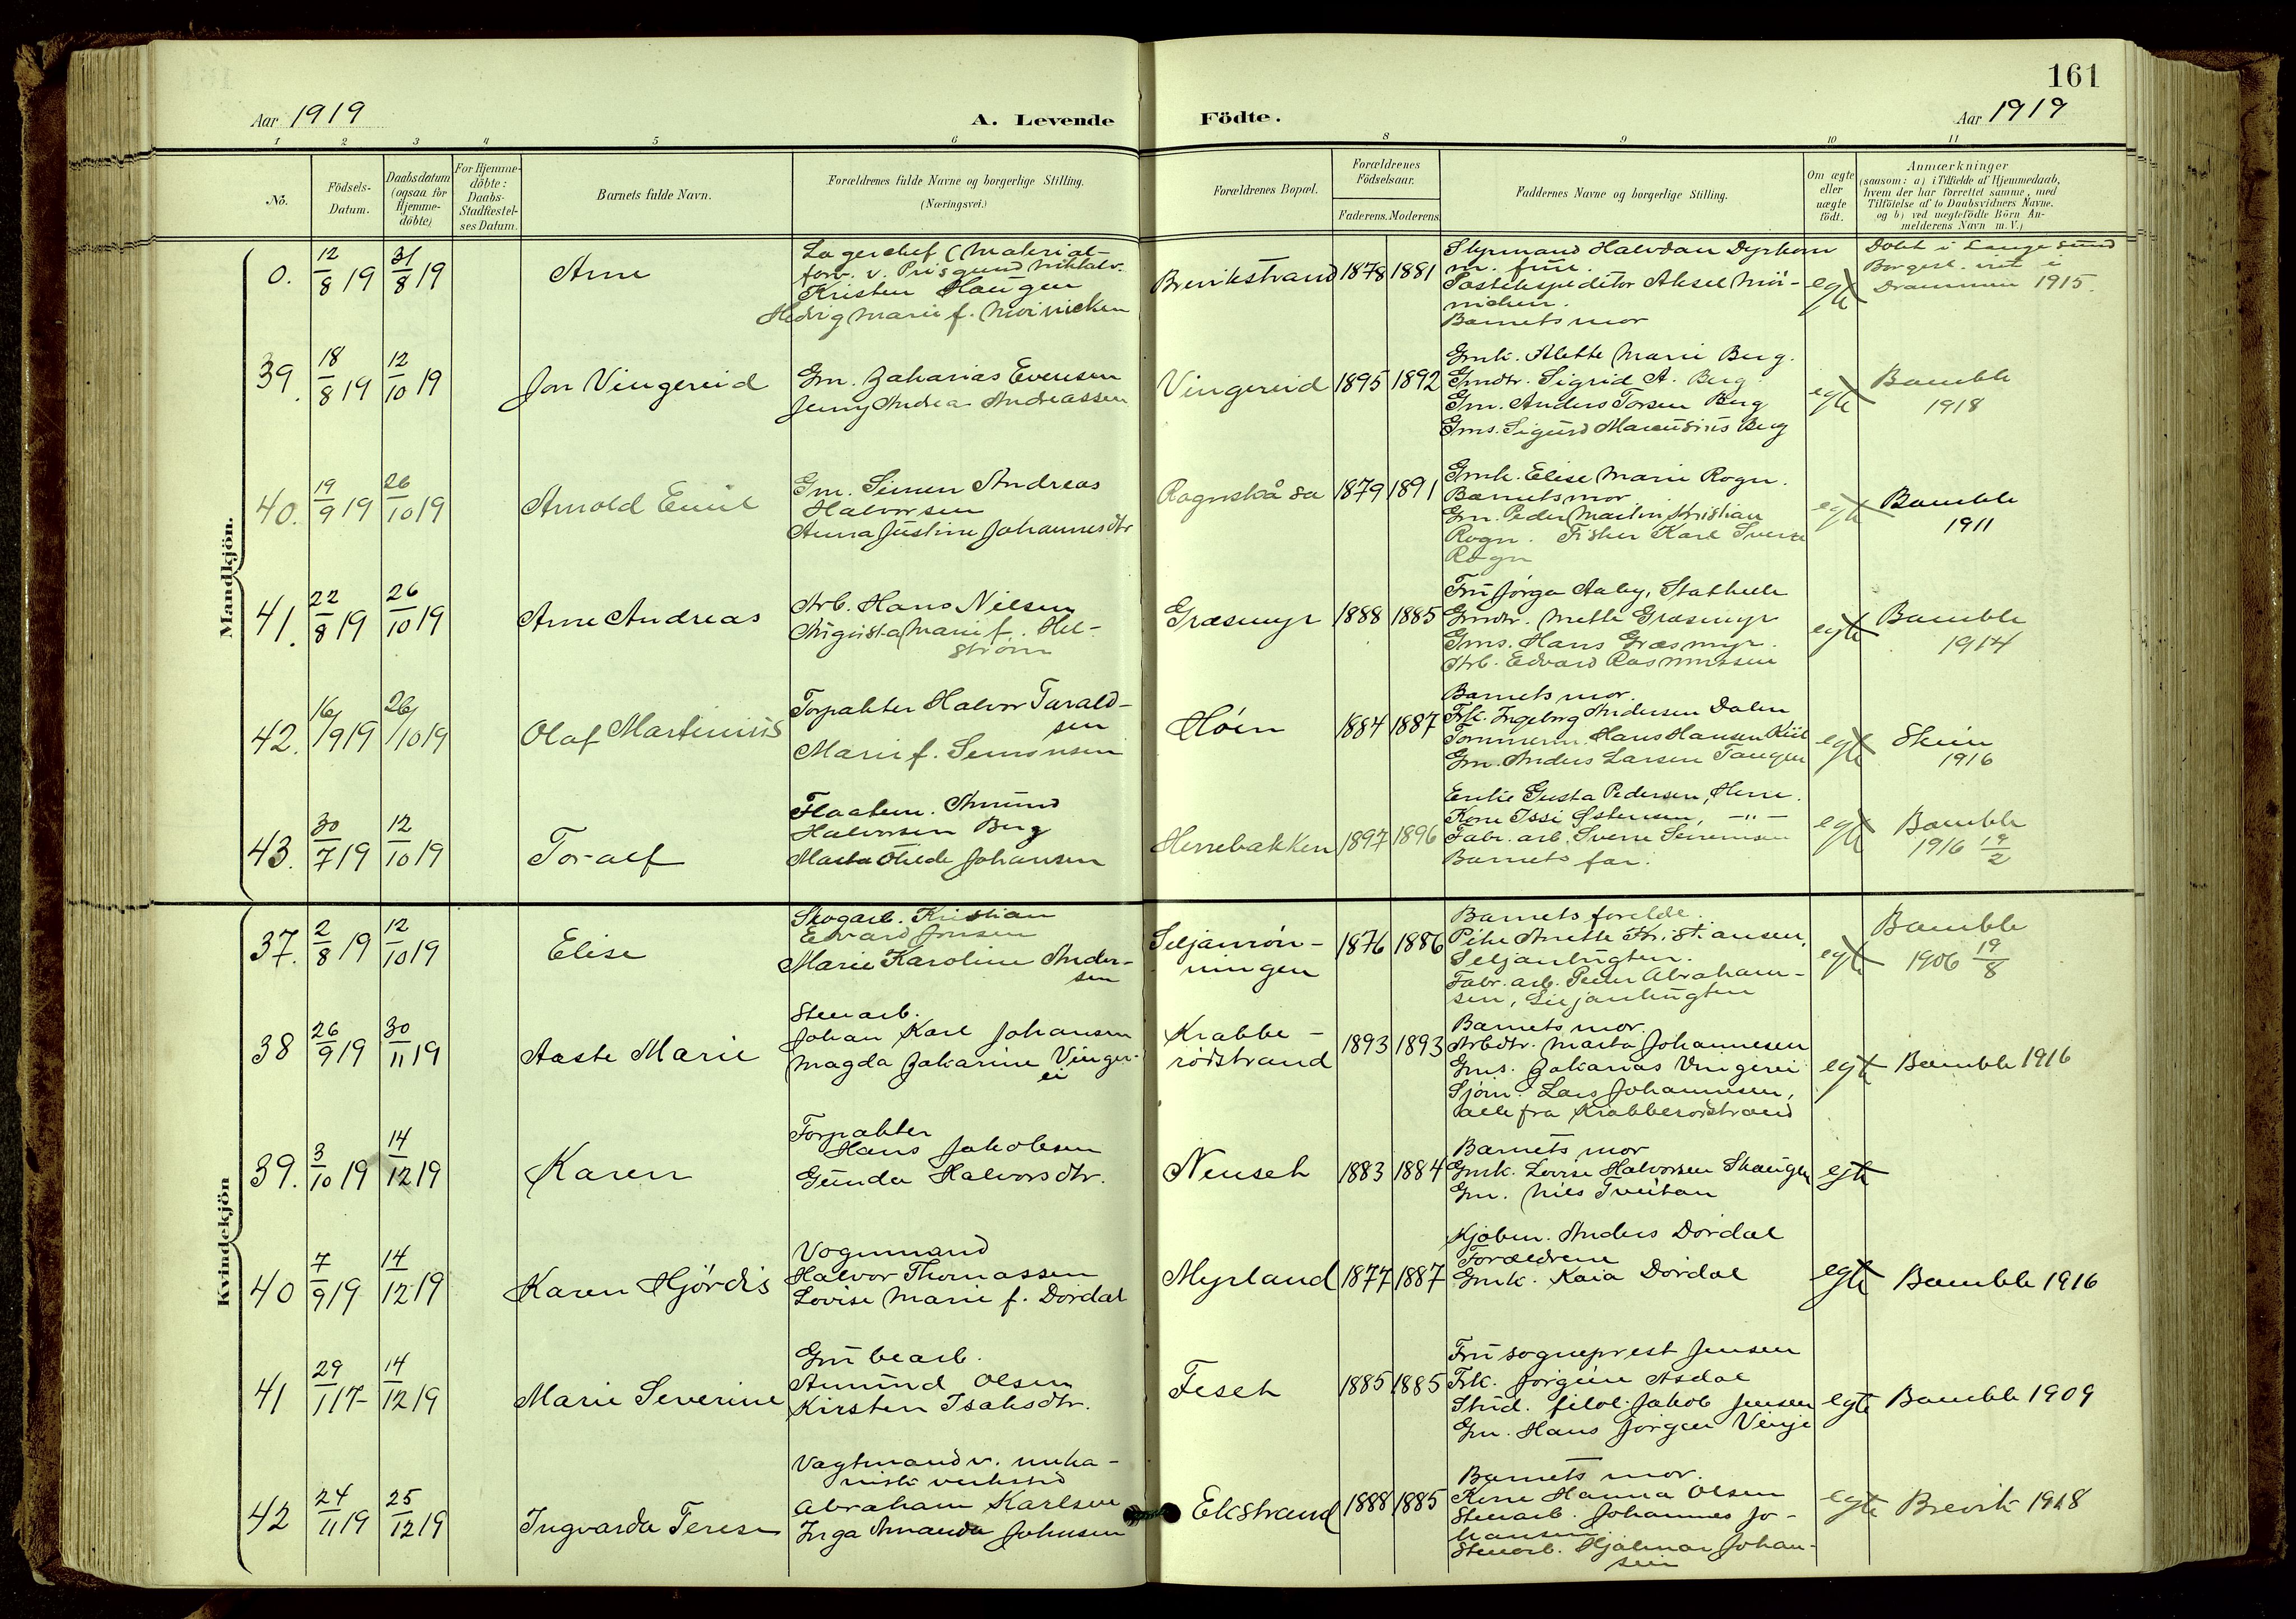 161
Aar 1919
A. Levende Födte.
Aar 1919
1 2 3 4 5 6 8 9 10 11
No.
Födsels-Datum.
Daabsdatum (ogsaa for Hjemme-döbte)
For Hjemme-döbte: Daabs-Stadfæstel-ses Datum.
Barnets fulde Navn.
Forældrenes fulde Navne og borgerlige Stilling.
(Næringsvei.)
Forældrenes Bopæl.
Forældrenes Födselsaar.
Faderens. Moderens
Faddernes Navne og borgerlige Stilling.
Om ægte eller uægte födt.
Anmærkninger
(saasom: a) i Tilfælde af Hjemmedaab,
hvem der har forrettet samme, med
Tilföielse af to Daabsvidners Navne.
og b) ved uegtefödte Börn An-
melderens Navn m.V.)
Mandkjön.
0. 12/8 19 31/8 19
Arne
Lagerchef (Material-
forv. v.
Kristen Haugen
Hedvig Marie f. Møinichen
Brevikstrand 1878 1881
Styrmand Halvdan Dyrhorn
m. frue.
Postekspeditør Aksel Møi-
nichen.
Barnets mor
egte
Døbt i Langesund
Borgerl. viet i
Drammen 1915.
39. 18/8 19 12/10 19
Jon Vingereid
Gm. Zakarias Evensen
Jenny Andrea Andreassen
Vingereid 1895 1892
Gmk. Alette Marie Berg.
Gmdtr. Sigrid A. Berg.
Gm. Anders Torsen Berg
Gms. Sigurd Marensius Berg
egte
Bamble
1918
40. 19/9 19 26/10 19
Arnold Emil
Gm. Simen Andreas
Halvorsen
Anna Justine Johannesdtr
Rognskåsa 1879 1891
Gmk. Elise Marie Rogn.
Barnets mor
Gm. Peder Martin Kristian
Rogn. Fisker Karl Sverre
Rogn
egte
Bamble
1911
41. 22/8 19 26/10 19
Arne Andreas
Arb. Hans Nilsen
Augusta Marie f. Hel-
strøm
Græsmyr 1888 1885
Fru Jørga Aaby, Stathelle
Gmdtr. Mette Græsmyr
Gms. Hans Græsmyr.
Arb. Edvard Rasmussen
egte
Bamble
1914
42. 16/9 19 26/10 19
Olaf Martinius
Forpakter Halvor Tarald-
sen
Marie f. Simonsen
Høen 1884 1887
Barnets mor.
Frk. Ingeborg Andersen Dalen
Tømmerm. Hans Hansen Kiil
Gm. Anders Larsen Tangen
egte
Skien
1916
43. 30/7 19 12/10 19
Toralf
Flaatem. Amund
Halvorsen Berg
Marta Otilde Johansen
Herrebakken 1897 1896
Enke Gusta Pedersen, Herre.
Kone Issi Østensen, -"-
Fabr. arb. Sverre Sørensen
Barnets far.
egte
Bamble
1916 19/2
Kvindekjön
37. 2/8 19 12/10 19
Elise
Skogarb. Kristian
Edvard Jonsen
Marie Karoline Ander-
sen
Seljanrøn-
ningen
1876 1886
Barnets forelde.
Pike Anette Kristiansen,
Seljanbugten.
Fabr. arb. Peder Abraham-
sen, Seljanbugten
egte
Bamble
1906 19/8
38 26/9 19 30/11 19
Aaste Marie
Stenarb.
Johan Karl Johansen
Magda Zakarine Vinger-
ei
Krabbe-
rødstrand
1893 1893
Barnets mor.
Arbdtr. Marta Johannesen
Gms. Zakarias Vingerei
Sjøm. Lars Johannesen,
alle fra Krabberødstrand
egte
Bamble 1916
39. 3/10 19 14/12 19
Karen
Forpakter
Hans Jakobsen
Gunda Halvorsdtr.
Nenset 1883 1884
Barnets mor
Gmk. Lovise Halvorsen Skaugen
Gm. Nils Tveitan
egte
40 7/9 19 14/12 19
Karen Hjørdis
Vognmand
Halvor Thomassen
Lovise Marie f. Dørdal
Myrland 1877 1887
Kjøbm. Anders Dørdal
Forældrene
Gmk. Kaia Dørdal
egte
Bamble 1916
41 29/11 17- 14/12 19
Marie Severine
Grubearb.
Amund Olsen
Kirsten Isaksdtr.
Feset 1885 1885
Fru sogneprest Jensen
Frk. Jørgine Asdal
Stud. filol. Jakob Jensen
Gm. Hans Jørgen Vinje
egte
Bamble 1909
42 24/11 19 25/12 19
Ingvarda Terese
Vagtmand v. meka-
nisk verksted
Abraham Karlsen
Inga Amanda Johnsen
Ekstrand 1888 1885
Barnets mor.
Kone Hanna Olsen
Stenarb. Johannes Jo-
hansen
Stenarb. Hjalmar Johan-
sen
egte
Brevik 1918